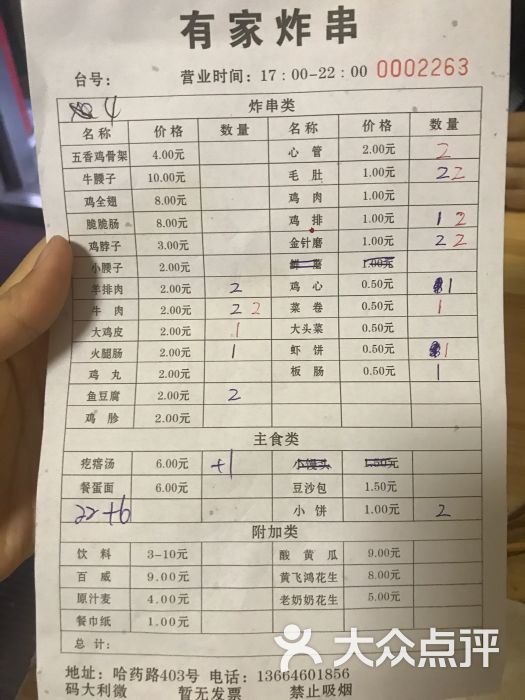 有家炸串
台号： 营业时间：17：00-22：00 0002263
4 炸串类
名称 价格 数量 名称 价格 数量
五香鸡骨架 4.00元 心管 2.00元 2
牛腰子 10.00元 毛肚 1.00元 2 2
鸡全翅 8.00元 鸡肉 1.00元
脆脆肠 8.00元 鸡排 1.00元 1 2
鸡脖子 3.00元 金针磨 1.00元 2 2
小腰子 2.00元 1.00元
羊排肉 2.00元 2 鸡心 0.50元 1
牛肉 2.00元 2 2 菜卷 0.50元 1
大鸡皮 2.00元 1 大头菜 0.50元
火腿肠 2.00元 1 虾饼 0.50元 1
鸡丸 2.00元 板肠 0.50元 1
鱼豆腐 2.00元 2
鸡胗 2.00元
主食类
疙瘩汤 6.00元 +1 小馒头 1.50元
餐蛋面 6.00元 豆沙包 1.50元
22+6 小饼 1.00元 2
附加类
饮料 3-10元 酸黄瓜 9.00元
百威 9.00元 黄飞鸿花生 8.00元
原汁麦 4.00元 老奶奶花生 5.00元
餐巾纸 1.00元
总计：
地址：哈药路403号 电话：13664601856
码大利微 暂无发票 禁止吸烟
大众点评